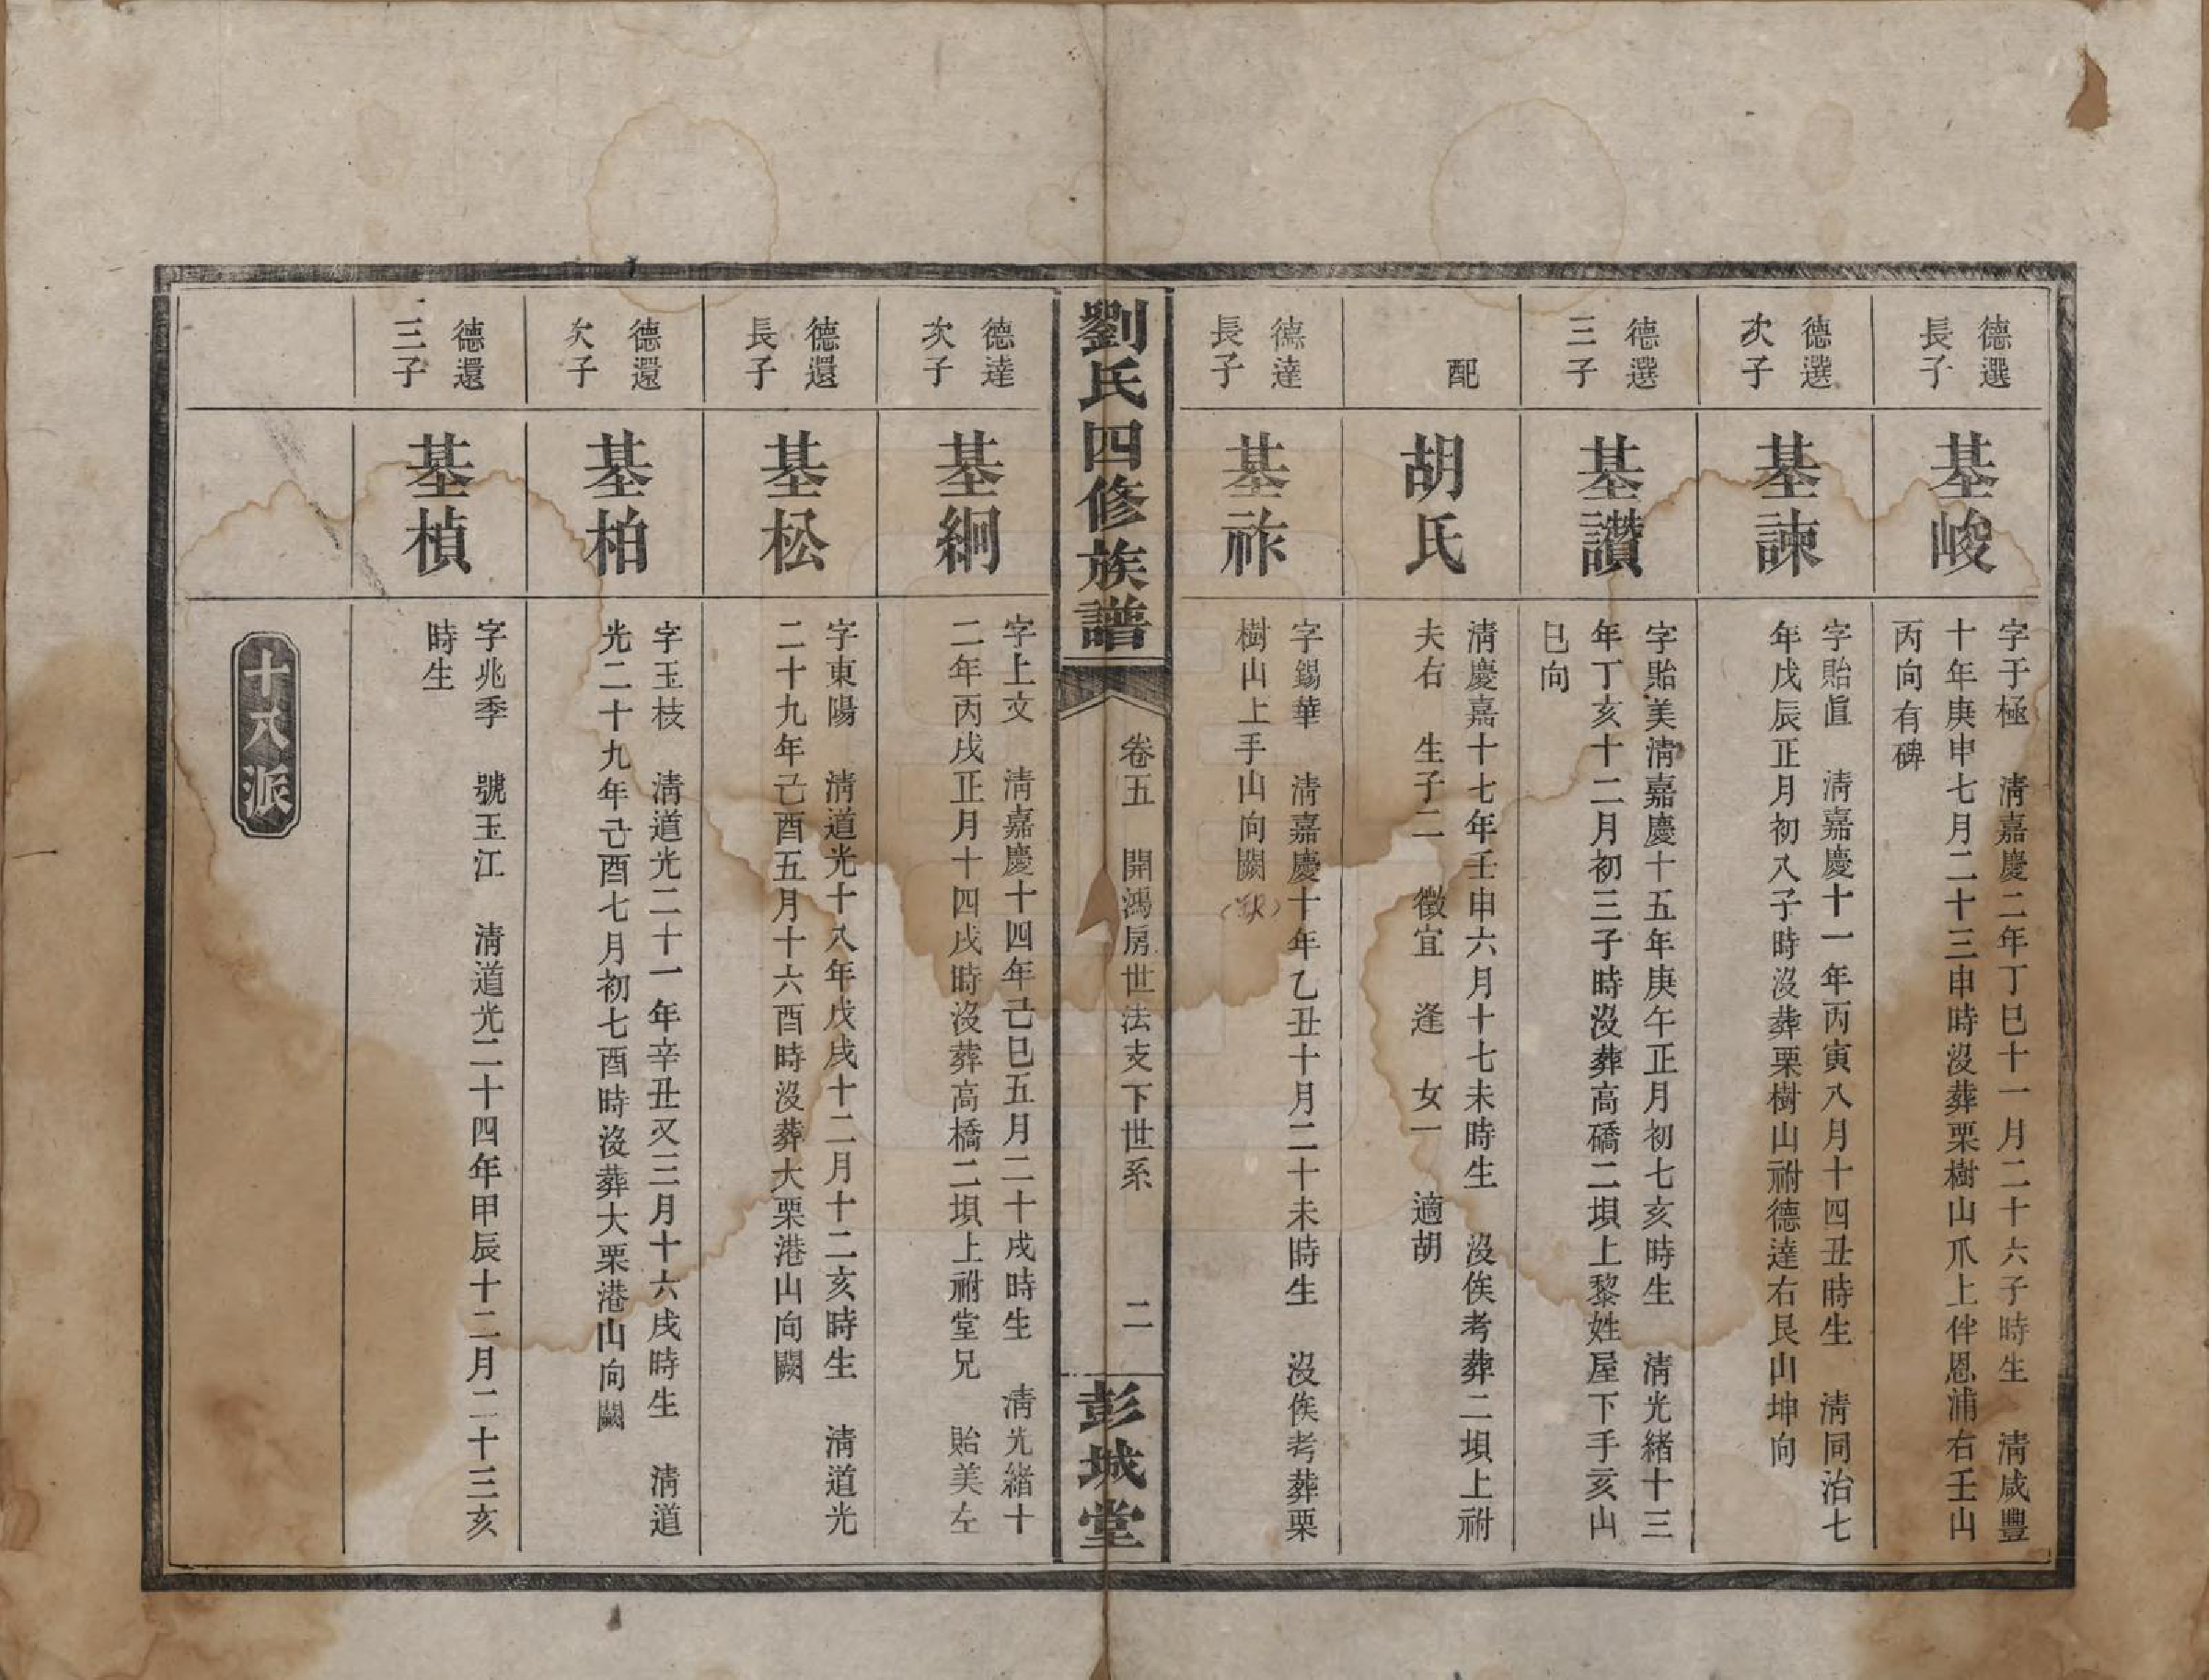 德選
長子
基峻
字于極　清嘉慶二年丁巳十一月二十六子時生　清咸豐
十年庚申七月二十三申時沒葬栗樹山爪上伴恩浦右壬山
丙向有碑
德選
次子
基諫
字貽眞　清嘉慶十一年丙寅八月十四丑時生　清同治七
年戊辰正月初八子時沒葬栗樹山祔德達右艮山坤向
德選
三子
基讚
字貽美清嘉慶十五年庚午正月初七亥時生　清光緒十三
年丁亥十二月初三子時沒葬高礄二垻上黎姓屋下手亥山
巳向
配
胡氏
清慶嘉十七年壬申六月十七未時生　沒俟考葬二垻上祔
夫右　生子二　徵宜　逢　女一　適胡
德達
長子
基祚
字錫華　清嘉慶十年乙丑十月二十未時生　沒俟考葬栗
樹山上手山向闕（缺）
劉氏四修族譜　卷五　開鴻房世法支下世系　二　彭城堂
德達
次子
基絅
字上文　清嘉慶十四年己巳五月二十戌時生　清光緒十
二年丙戌正月十四戌時沒葬高橋二垻上祔堂兄　貽美左
德還
長子
基松
字東陽　清道光十八年戊戌十二月十二亥時生　清道光
二十九年己酉五月十六酉時沒葬大栗港山向闕
德還
次子
基柏
字玉枝　清道光二十一年辛丑又三月十六戌時生　清道
光二十九年己酉七月初七酉時沒葬大栗港山向闕
德還
三子
基楨
字兆季　號玉江　清道光二十四年甲辰十二月二十三亥
時生
十八派